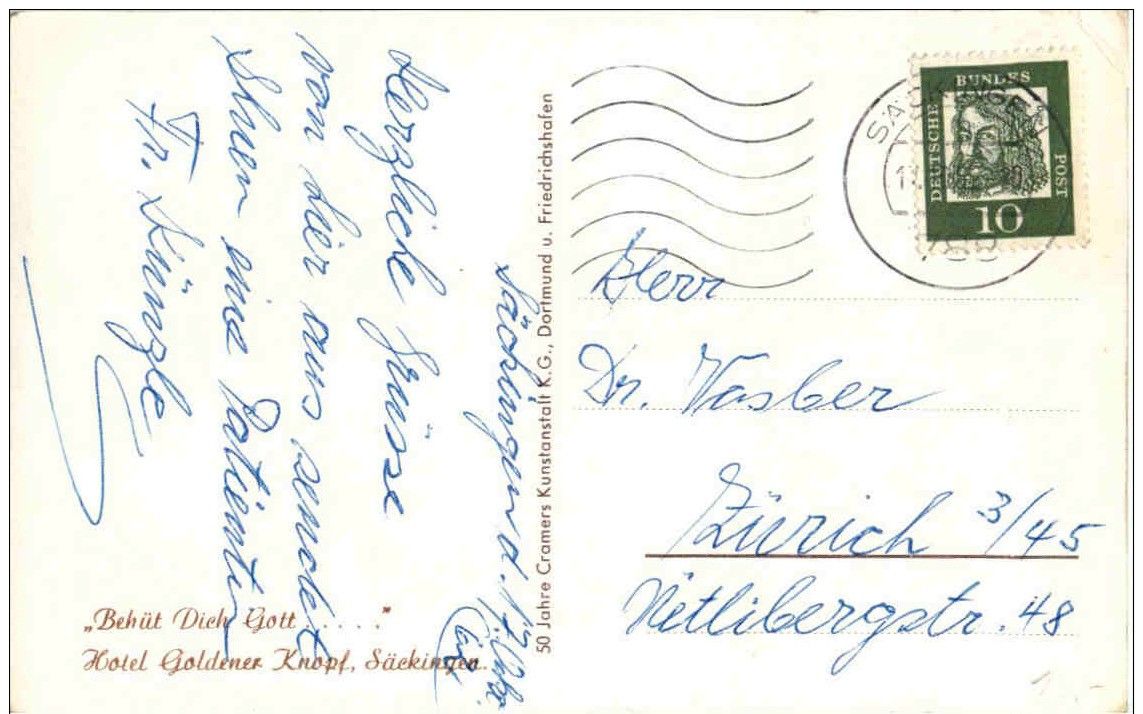 Säckingen d.
Herzliche Grüsse
von hier aus sendet
Ihnen eine Patientin
Fr. Künzle
„Behüt Dich Gott . . . . .”
Hotel Goldener Knopf, Säckingen.
50 Jahre Cramers Kunstanstalt K.G., Dortmund u. Friedrichshafen
SÄCKINGEN
DEUTSCHE BUNDES POST
10
Herr
Dr. Vasber
Zürich 3/45
Uetlibergstr. 48